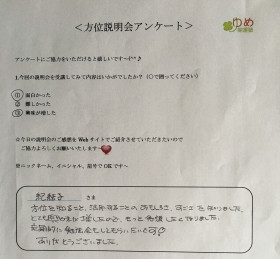 ＜方位説明会アンケート＞
ゆめ
アンケートにご協力をいただけると嬉しいです～(^^♪
1.今回の説明会を受講してみて内容はいかがでしたか？（○で囲ってください）
① 面白かった
② 難しかった
③ 興味が増した
☆今日の説明会のご感想をWebサイトでご紹介させていただきたいので
ご協力よろしくお願いいたします～
※ニックネーム、イニシャル、匿名でOKです～
さま
方位を知ること、活用することのおもしろさ、すごさを知りました。
とても興味が増したので、もっと勉強したくなりました。
定期的に勉強会をしてもらいたいです
ありがとうございました。